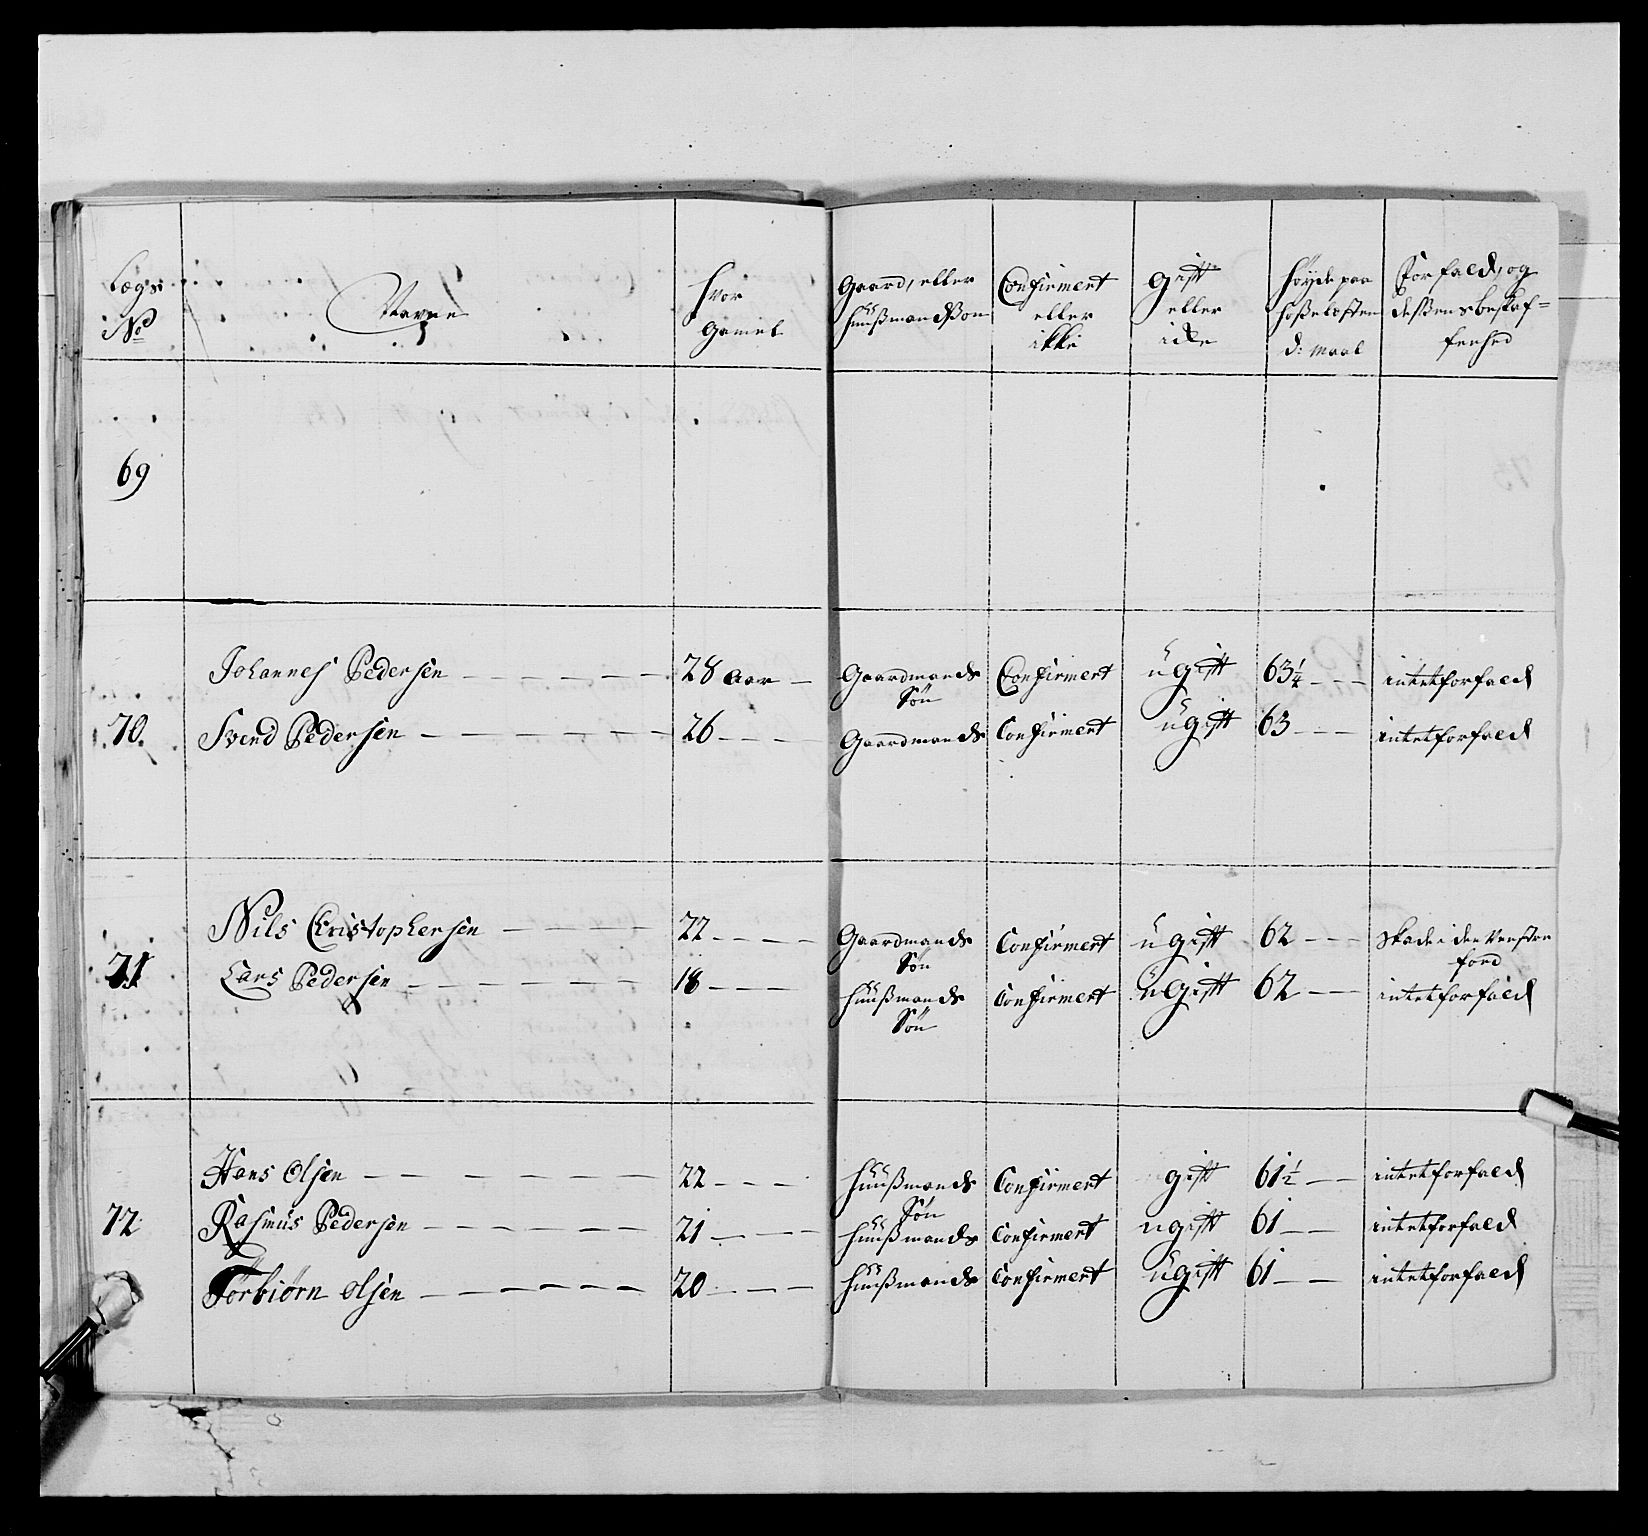 Lægs No | Navne | hvor Gamel | Gaard, eller Huusmandsøn | Confirmert eller ikke | gift eller icke | Høyde paa Hoßelosten d: maal | Forfald, og deßens beskaffenhed
69
Johannes Pedersen | 28 Aar | Gaardmands Søn | Confirmert | ugift | 63 1/4 | intet forfald
70 | Svend Pedersen | 26 | Gaardmands | Confirmert | ugift | 63 | intet forfald
Nils Christophersen | 22 | Gaardmands Søn | Confirmert | ugift | 62 | Skade i den Venstre
71 | Lars Pedersen | 18 | Huußmands Søn | Confirmert | ugift | 62 | intet forfald
Hans Olsen | 22 | Huußmands Søn | Confirmert | gift | 61 1/2 | intet forfald
72 | Rasmus Pedersen | 21 | Huußmands | Confirmert | ugift | 61 | intet forfald
Torbiørn Olsen | 20 | Huußmands | Confirmert | ugift | 61 | intet forfald